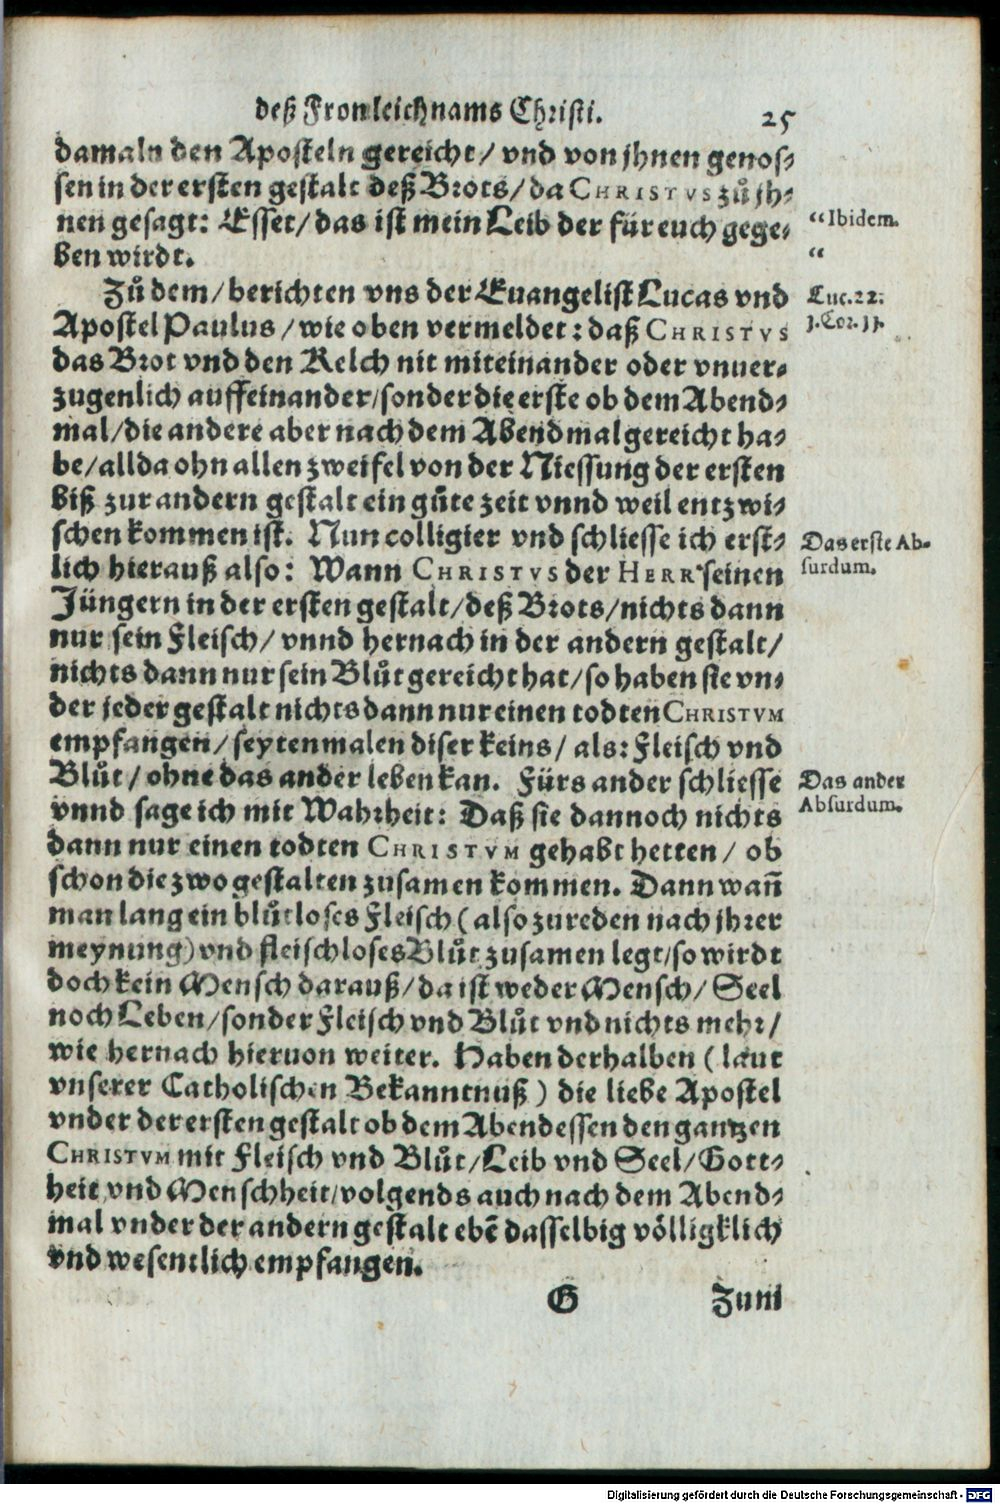 deß Fronleichnams Christi. 25
damaln den Aposteln gereicht/ vnd von jhnen genos-
sen in der ersten gestalt deß Brots/ da CHRISTVS zů jh-
nen gesagt: Esset/ das ist mein Leib der für euch gege-
ben wirdt.
“Ibidem.
“
Zů dem/ berichten vns der Euangelist Lucas vnd
Apostel Paulus/ wie oben vermeldet: daß CHRISTVS
das Brot vnd den Kelch nit miteinander oder vnuer-
zugenlich auffeinander/ sonder die erste ob dem Abend-
mal/ die andere aber nach dem Abendmal gereicht ha-
be/ allda ohn allen zweifel von der Niessung der ersten
biß zur andern gestalt ein gůte zeit vnnd weil entzwi-
schen kommen ist. Nun colligier vnd schliesse ich erst-
lich hierauß also: Wann CHRISTVS der HERR seinen
Jüngern in der ersten gestalt/ deß Brots/ nichts dann
nur sein Fleisch/ vnnd hernach in der andern gestalt/
nichts dann nur sein Blůt gereicht hat/ so haben sie vn-
der jeder gestalt nichts dann nur einen todten CHRISTVM
empfangen/ seytenmalen diser keins/ als: Fleisch vnd
Blůt/ ohne das ander leben kan. Fürs ander schliesse
vnnd sage ich mit Wahrheit: Daß sie dannoch nichts
dann nur einen todten CHRISTVM gehabt hetten/ ob
schon die zwo gestalten zusamen kommen. Dann wañ
man lang ein blůtloses Fleisch (also zureden nach jhrer
meynung) vnd fleischloses Blůt zusamen legt/ so wirdt
doch kein Mensch darauß/ da ist weder Mensch/ Seel
noch Leben/ sonder Fleisch vnd Blůt vnd nichts mehr/
wie hernach hieruon weiter. Haben derhalben (laut
vnserer Catholischen Bekanntnuß) die liebe Apostel
vnder der ersten gestalt ob dem Abendessen den gantzen
CHRISTVM mit Fleisch vnd Blůt/ Leib vnd Seel/ Gott-
heit vnd Menschheit/ volgends auch nach dem Abend-
mal vnder der andern gestalt ebẽ dasselbig völligklich
vnd wesentlich empfangen.
Luc. 22.
1. Cor. 11.
Das erste Ab-
surdum.
Das ander
Absurdum.
G Zum
Digitalisierung gefördert durch die Deutsche Forschungsgemeinschaft - DFG